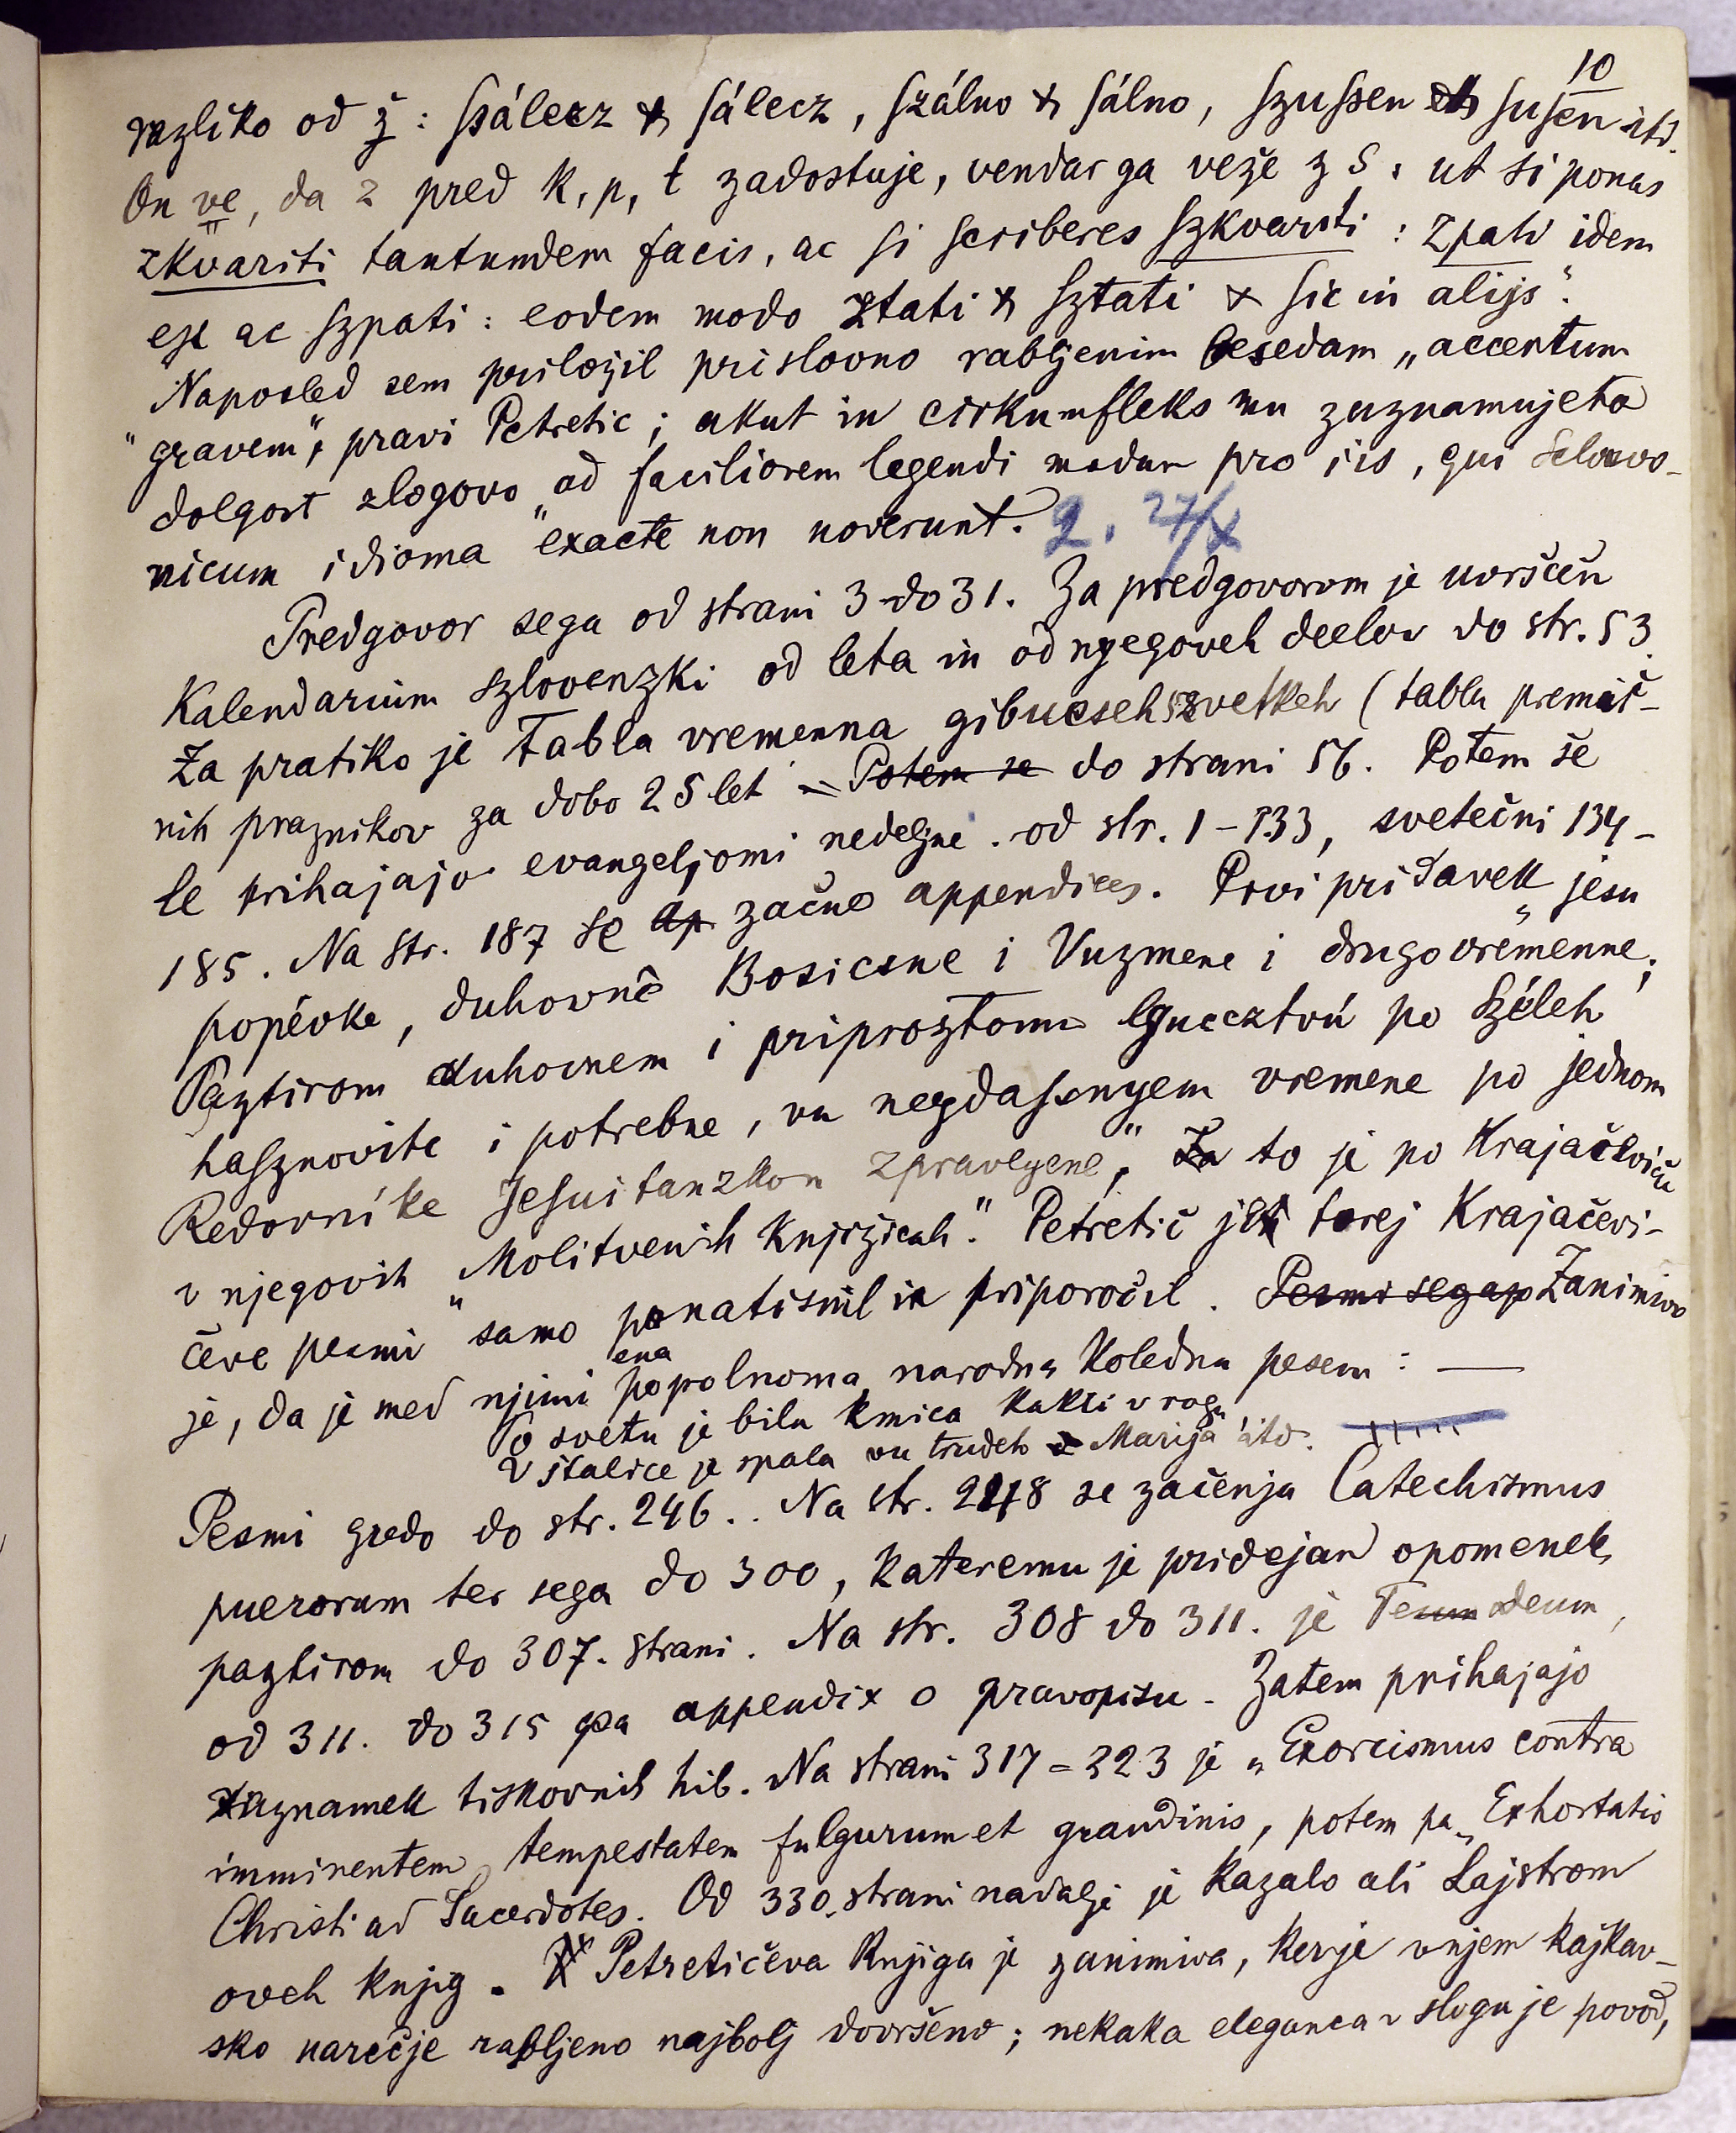 10
razliko od ž : ſsálecz & ſálecz, ſzálno & ſálno, ſzuſsen & ſuſen itd.
On ve, da z pred k, p, t zadostuje, vendar ga veže z s : ut si ponas
zkvariti tantundem facis, ac ſi scriberes ſzkvariti : zpati idem
eſt ac ſzpati : eodem modo ztati & ſztati & ſic in alijs“.
Naposled sem priložil prislovno rabljenim besedam „accentum
"gravem", pravi Petretic ; akut in cirkumfleks mu zaznamujeta
dolgost zlogovo „ad faciliorem legendi modum pro iis, qui Sclavo-
nicum idioma exacte non noverunt. 2. 27/X
Predgovor sega od strani 3 do 31. Za predgovorom je uvrščen
Kalendarium szlovenzki od leta in od nyegoveh deelov do str. 53.
Za pratiko je Tabla vremenna gibucseh szvetkeh (tabla premič-
nih praznikov za dobo 25 let – Potem se do strani 56. Potem še
le prihajajo evangeljomi nedeljne . od str. 1 – 133, svetečni 134 –
185. Na str. 187 se ap začno appendices. Prvi pridavek „jesu
popévke, duhovne Bosicsne i Vuzmene i drugovremenne ;
Paztirom duhovnem i priproztomu lyucztvú po Széleh
haſznovite i potrebne, vu negdaſsnyem vremene po jednom
Redovníke Jeſuitanzkom zpravlyene", Za to je po Krajačeviču
v njegovih „Molitvenih knjižicah." Petretič je torej Krajačevi-
čeve pesmi samo ponatisnil in priporočil. Pesmi segajo Zanimivo
je, da je med njimi ena popolnoma narodna koledna pesem : —
Po svetu je bila kmica kakti v rogu
V štalice je spala vu trudeh Marija itd.
Pesmi gredo do str. 246.. Na str. 248 se začenja Catechismus
puerorum ter sega do 300, kateremu je pridejan opomenek
paztirom do 307. strani. Na str. 308 do 311. je Te deum,
od 311. do 315 pa appendix o pravopisu. Zatem prihajajo
zaznamek tiskovnih hib. Na strani 317 = 323 je „Exorcismus contra
imminentem tempestatem fulgurum et grandinis, potem pa „Exhortatio
Christi ad Sacerdotes. Od 330. strani nadalje je kazalo ali Lajstrom
oveh knjig. Petretičeva knjiga je zanimiva, ker je v njem kajkav-
sko narečje rabljeno najbolj dovršeno ; nekaka eleganca v slogu je povod,